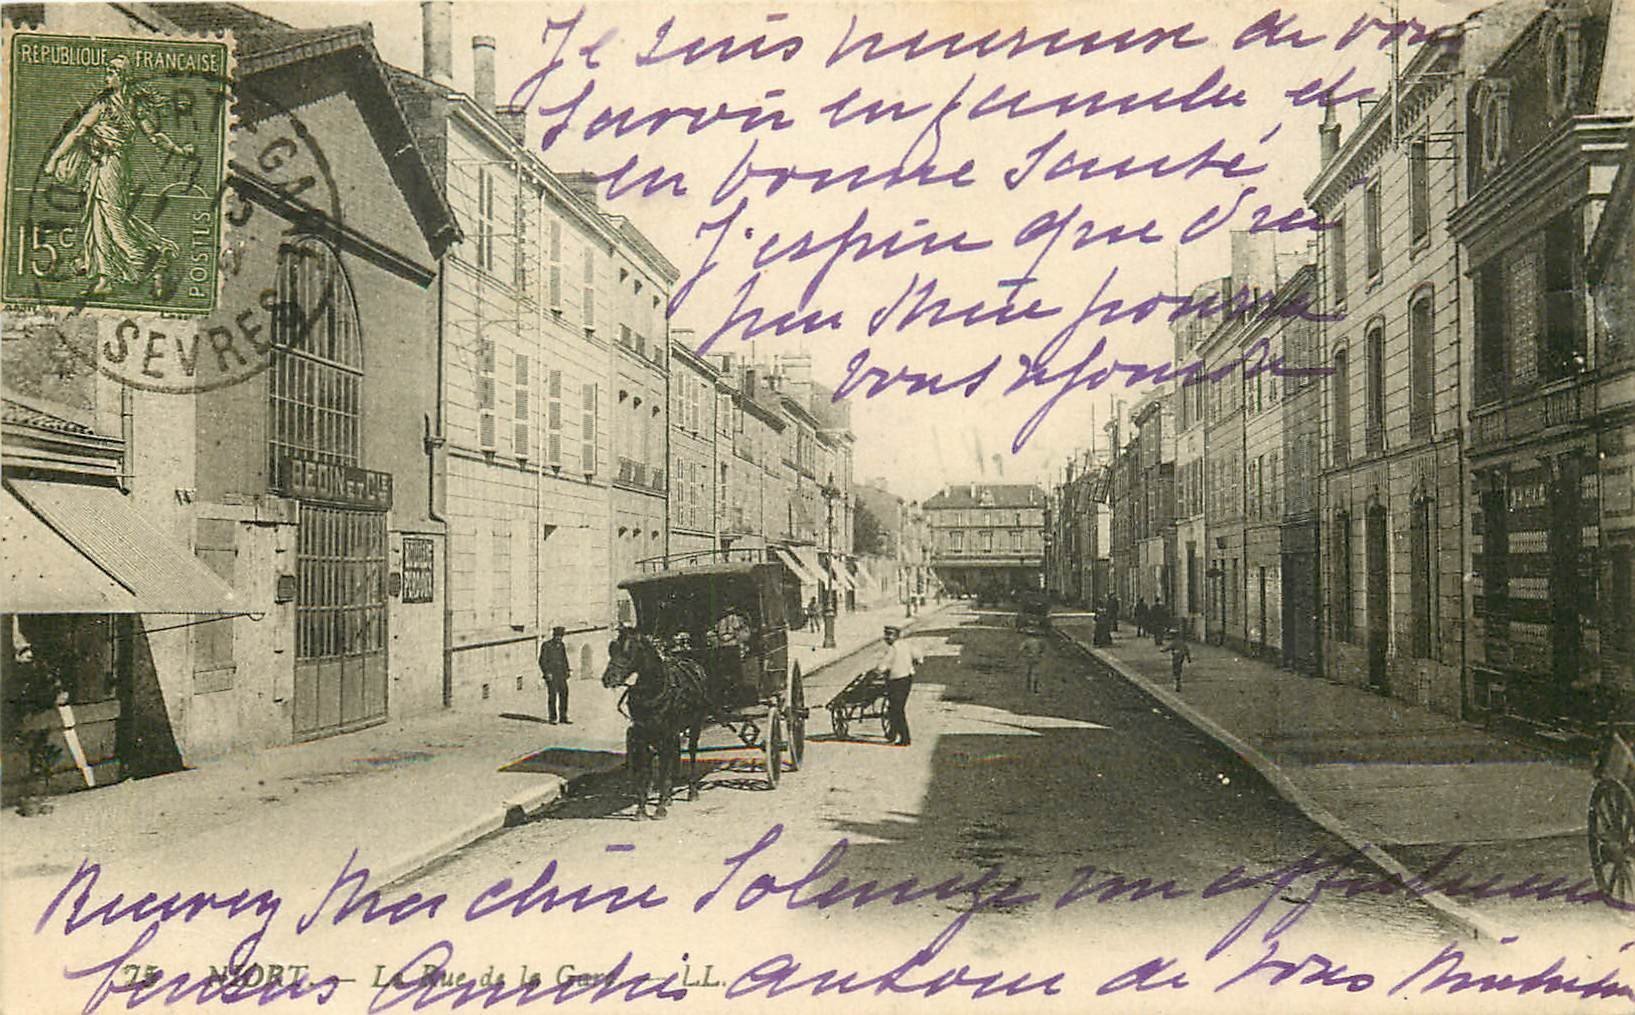 Je suis heureuse de vous
savoir en famille et
en bonne santé
J'espère que d'ici
peu Mère pourra
vous rejoindre
REPUBLIQUE FRANÇAISE
15c
POSTES
NIORT-GARE
SEVRES
BEDIN ET CIE
Recevez Ma chère Solange un affectueux
75 NIORT. — La Rue de la Gare. — LL.
autour de vous